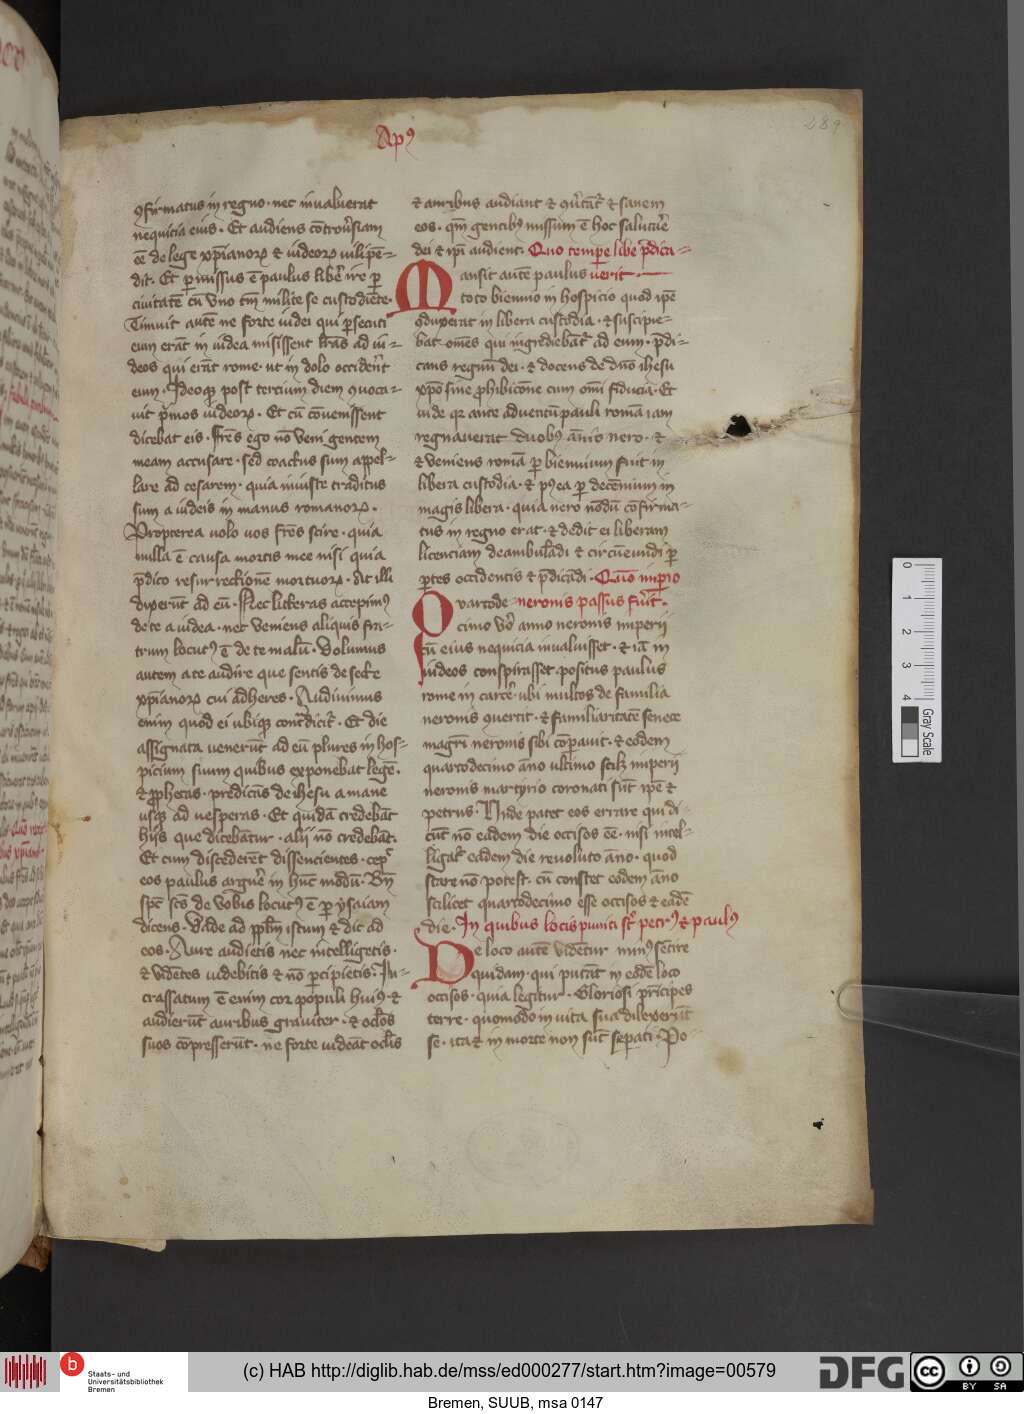 Apꝰ
289
ꝯfirmatus in regno · nec inualuerat
nequicia eius · Et audiens cōtrouͥsiam
ēē de lege xp̄ianoꝝ & iudeoꝝ uilipē=
dit · Et ꝑmissus ē paulus libeͬ ire ꝑ
ciuitatē cū vno tm̄ milite se custodiēte ·
Timuit autē ne forte iudei qui ꝑsecuti
eum erāt in iudea misissent lr̄as ad iu=
deos qui erāt rome · ut in dolo occideͬnt
eum · Ideoqꝫ post tercium diem ꝯuoca=
uit pͥmos iudeoꝝ · Et cū cōuenissent
dicebat eis · Fr̄es ego nō veni gentem
meam accusare · sed coactus sum appel=
lare ad cesarem · quia iniuste traditus
sum a iudeis in manus romanoꝝ ·
Propterea uolo uos fr̄es scire · quia
nulla ē causa mortis mee nisi quia
p̄dico resurrectionē mortuoꝝ · At illi
dixerūt ad eū · Nec litteras accepimꝰ
de te a iudea · nec veniens aliquis fra=
trum locutꝰ ē de te malū · Volumus
autem a te audire que sentis de secta
xp̄ianoꝝ cui adheres · Audiuimus
enim quod ei ubiqꝫ contͣdicitͬ · Et die
assignata uenerūt ad eū plures in hos=
picium suum quibus exponebat legē ·
& ꝓphetas · predicās de ihesu a mane
usqꝫ ad uesperas · Et quidā credebāt
hijs que dicebātur · alij nō credebāt ·
Et cum discederēt dissencientes · cepͭ
eos paulus arguͬe in hūc modū · Bn̄
spc̄ scūs de vobis locutꝰ ē ꝑ ysaiam
dicens · Vade ad ppl̄m istum & dic ad
eos · Aure audietis nec intelligetis ·
& vidētes uidebitis & nō ꝑcipietis · In=
crassatum ē enim cor populi huiꝰ · &
audierūt auribus grauiter · & oclōs
suos cōpresserūt · ne forte uideāt oclīs
& auribus audiant & ꝯuͬtātͬ & sanem
eos · qm̄ gentibꝰ missum ē hoc salutaͬe
dei & ip̄i audient · Quo tempe libe p̄dica=
Mansit autē paulus uerit
toto biennio in hospicio quod ip̄e
ꝯduxerat in libera custodia · & suscipie=
bat om̄es qui ingrediebātͬ ad eum · p̄di=
cans regnū dei · & docens de dn̄o ihesu
xp̄o sine ꝓhibicōne cum om̄i fiducia · Et
uide qꝛ ante aduentū pauli romā iam
regnauerat duobꝰ ānis nero · &
& veniens romā ꝑ biennium fuit in
libera custodia · & pꝰea ꝑ decēnium in
magis libera · quia nero nōdū cōfirma=
tus in regno erat · & dedit ei liberam
licenciam deambulādi & circūeundi ꝑ
ꝑtes occidentis & p̄dicādi · Quo imperio
Quartode= neronis passus fuͥit ·
cimo vͦo anno neronis imperij
cū eius nequicia inualuisset · & iā in
iudeos conspirasset positus paulus
rome in carceͬ · ubi multos de familia
neronis ꝯuertit · & familiaritatē senece
magrī neronis sibi cōpauit · & eodem
quartodecimo āno ultimo scilꝫ imperij
neronis martyrio coronati sūt ip̄e &
petrus · Vnde patet eos errare qui di=
cūt nō eadem die occisos ēē · nisi intel=
ligatͬ eadem die reuoluto āno · quod
stare nō potest · cū constet eodem āno
scilicet quartodecimo esse occisos & eadē
die · In quibus locis puniti sͭ petrꝰ & paulꝰ
De loco autē videntur minꝰ sētire
quidam · qui putāt in eodē loco
occisos · quia legitur · Gloriosi pͥncipes
terre · quomodo in uita sua dilexerūt
se · ita & in morte non sūt sepati · Po
Gray Scale
0
1
2
3
4
b
Staats- und
Universitätsbibliothek
Bremen
(c) HAB http://diglib.hab.de/mss/ed000277/start.htm?image=00579
DFG
cc BY SA
Bremen, SUUB, msa 0147